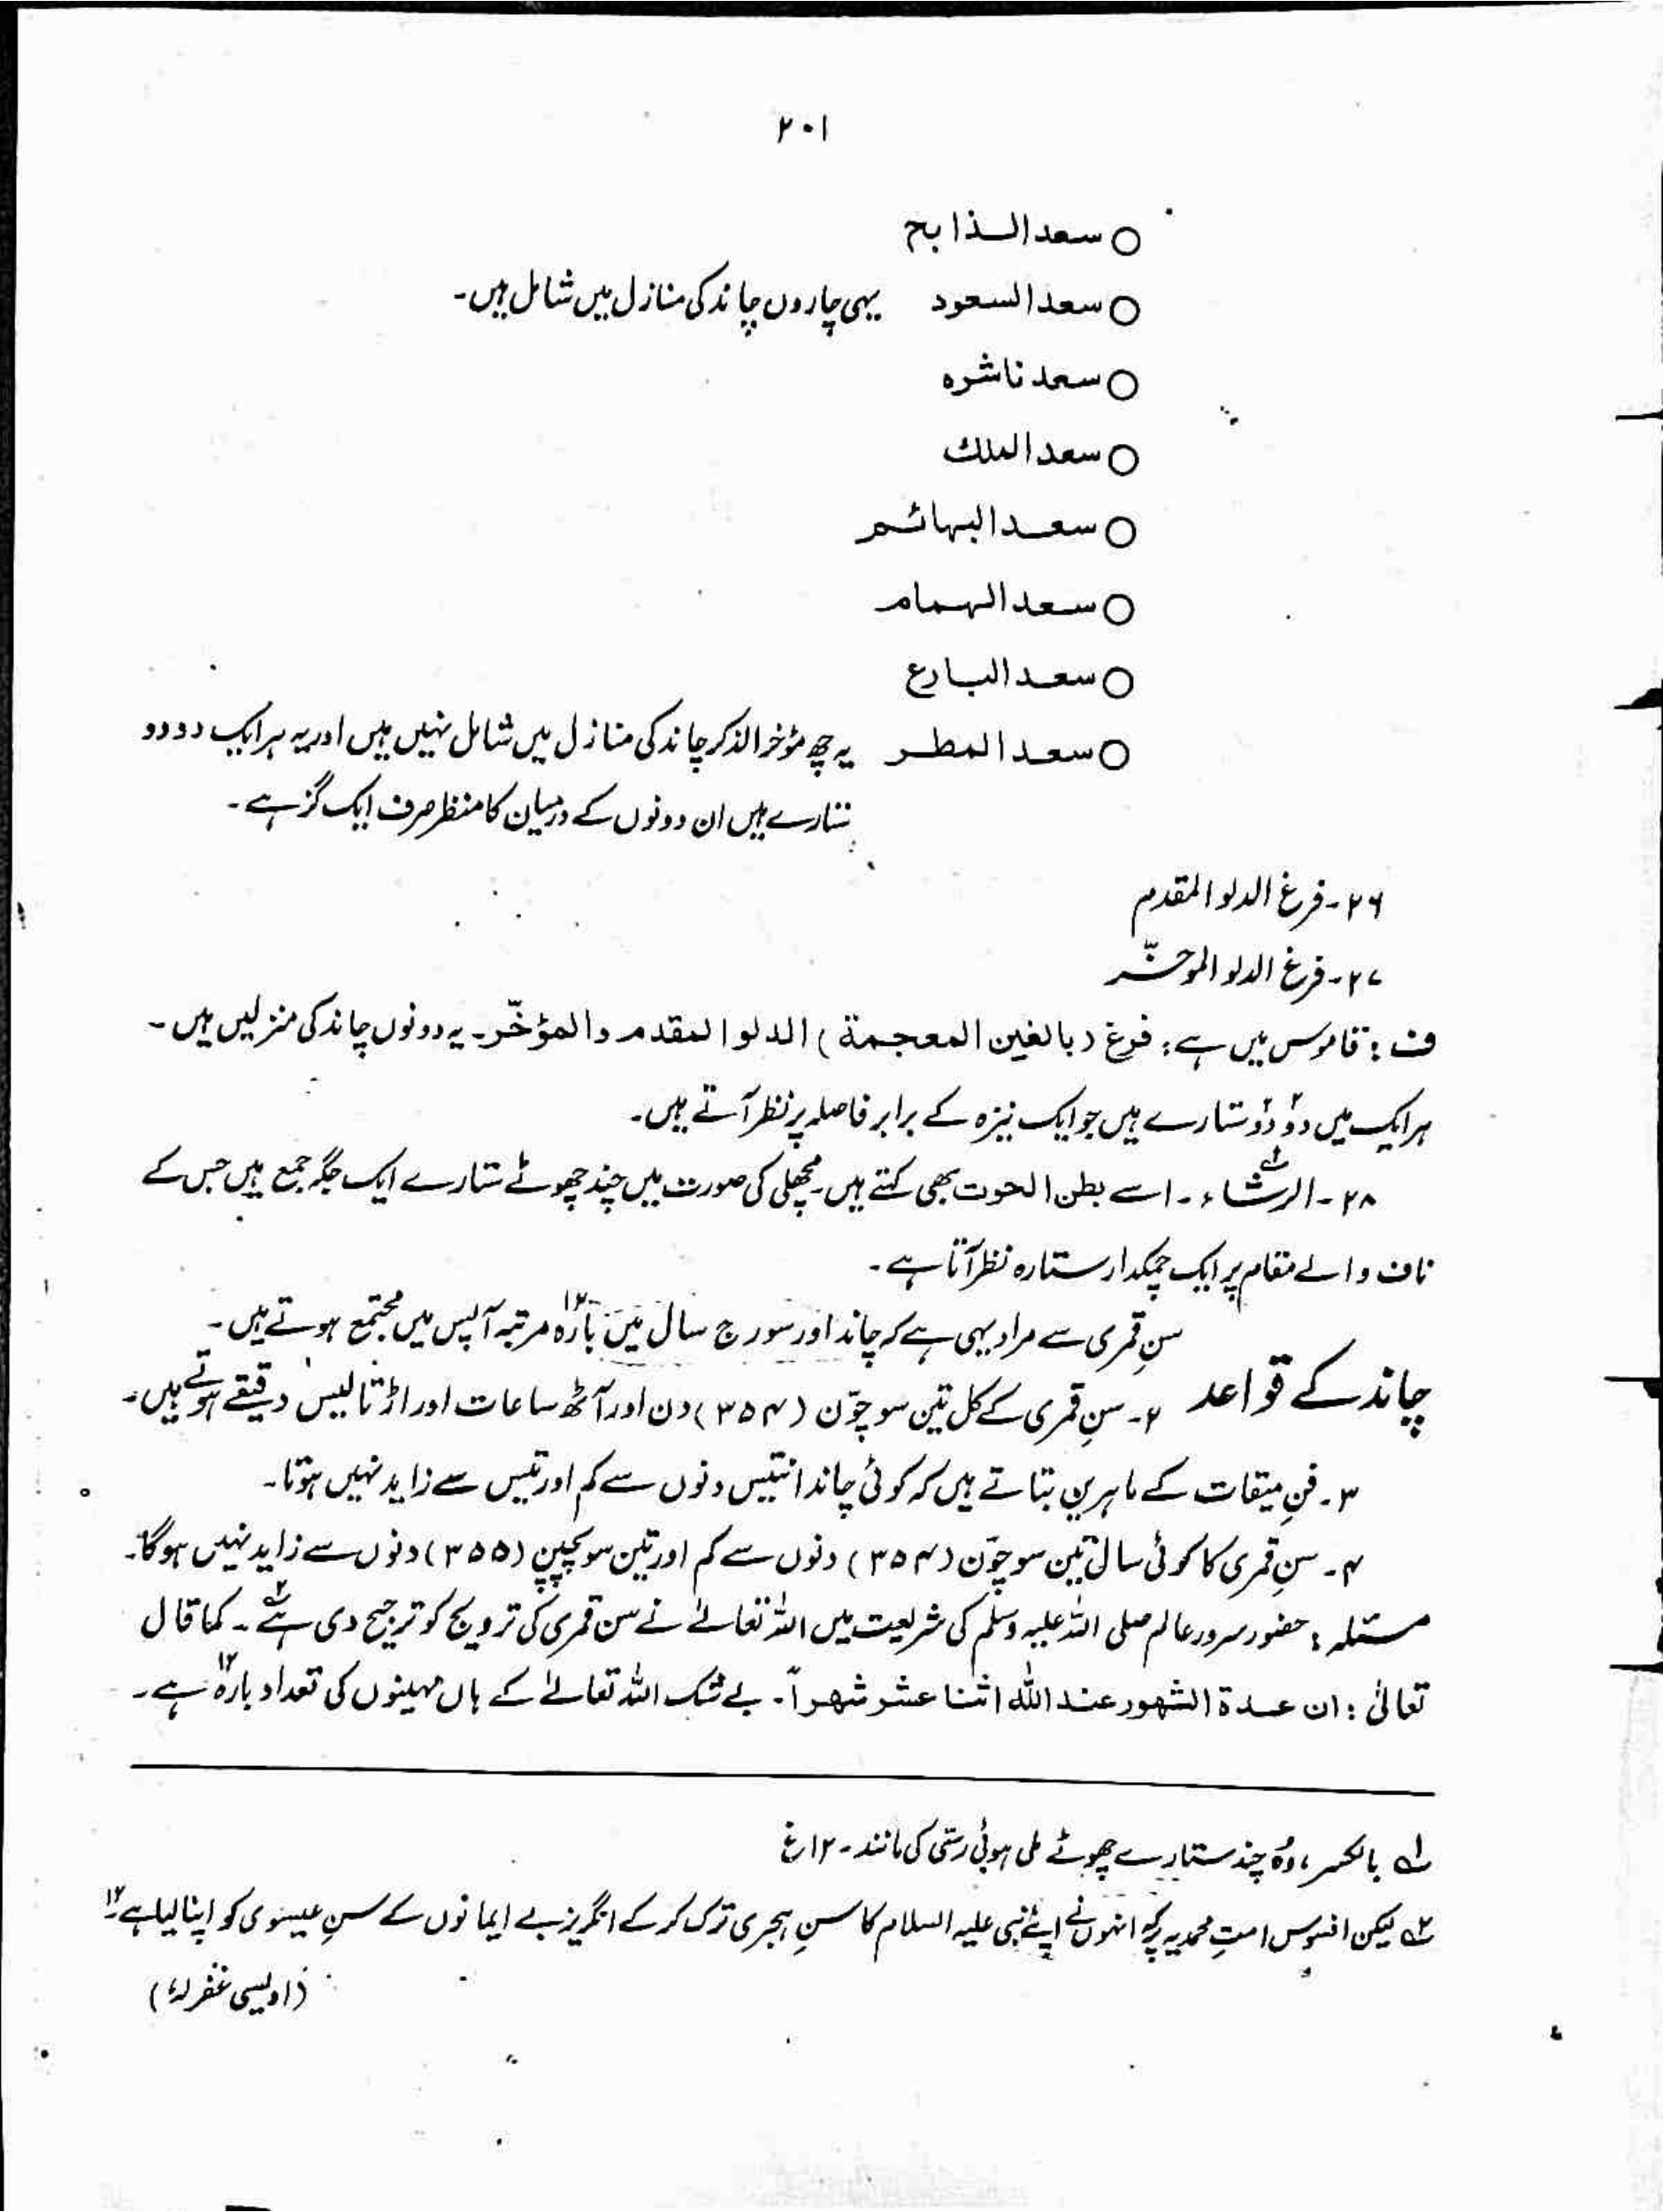 ۲۰۱
○ سعد الذابح
○ سعد السعود یہی چاروں چاند کی منازل میں شامل ہیں۔
○ سعد ناشرہ
○ سعد الملك
○ سعد البہائم
○ سعد الہمام
○ سعد البارع
○ سعد المطر یہ چھ مؤخر الذکر چاند کی منازل میں شامل نہیں ہیں اور یہ ہر ایک دو دو
ستارے ہیں ان دونوں کے درمیان کا منظر صرف ایک گز ہے۔
۲۶۔ فرغ الدلو المقدم
۲۷۔ فرغ الدلو الموخّر
ف : قاموس میں ہے : فرغ (بالغین المعجمة) الدلو المقدم والمؤخّر۔ یہ دونوں چاند کی منزلیں ہیں۔
ہر ایک میں دو۲ دو۲ ستارے ہیں جو ایک نیزہ کے برابر فاصلہ پر نظر آتے ہیں۔
۲۸۔ الرشاء۱ ۔ اسے بطن الحوت بھی کہتے ہیں۔ مچھلی کی صورت میں چند چھوٹے ستارے ایک جگہ جمع ہیں جس کے
ناف والے مقام پر ایک چمکدار ستارہ نظر آتا ہے۔
سنِ قمری سے مراد یہی ہے کہ چاند اور سورج سال میں بارہ۱۲ مرتبہ آپس میں مجتمع ہوتے ہیں۔
چاند کے قواعد
۲۔ سنِ قمری کے کل تین سو چوّن (۳۵۴) دن اور آٹھ ساعات اور اڑتالیس دقیقے ہوتے ہیں۔
۳۔ فنِ میقات کے ماہرین بتاتے ہیں کہ کوئی چاند انتیس دنوں سے کم اور تیس سے زاید نہیں ہوتا۔
۴۔ سنِ قمری کا کوئی سال تین سو چوّن (۳۵۴) دنوں سے کم اور تین سو پچپن (۳۵۵) دنوں سے زاید نہیں ہوگا۔
مسئلہ : حضور سرور عالم صلی اللہ علیہ وسلم کی شریعت میں اللہ تعالےٰ نے سن قمری کی ترویج کو ترجیح دی ہے۲ ۔ کما قال
تعالیٰ : ان عدة الشهور عند الله اثنا عشر شهراً۔ بے شک اللہ تعالےٰ کے ہاں مہینوں کی تعداد بارہ۱۲ ہے۔
۱ بالکسر، وُہ چند ستارے چھوٹے ملی ہوئی رسّی کی مانند۔ ۱۲ غ
۲ لیکن افسوس امتِ محمدیہ پر کہ انہوں نے اپنے نبی علیہ السلام کا سنِ ہجری ترک کر کے انگریز بے ایمانوں کے سنِ عیسوی کو اپنا لیا ہے۔ ۱۲
(اویسی غفرلہٗ)